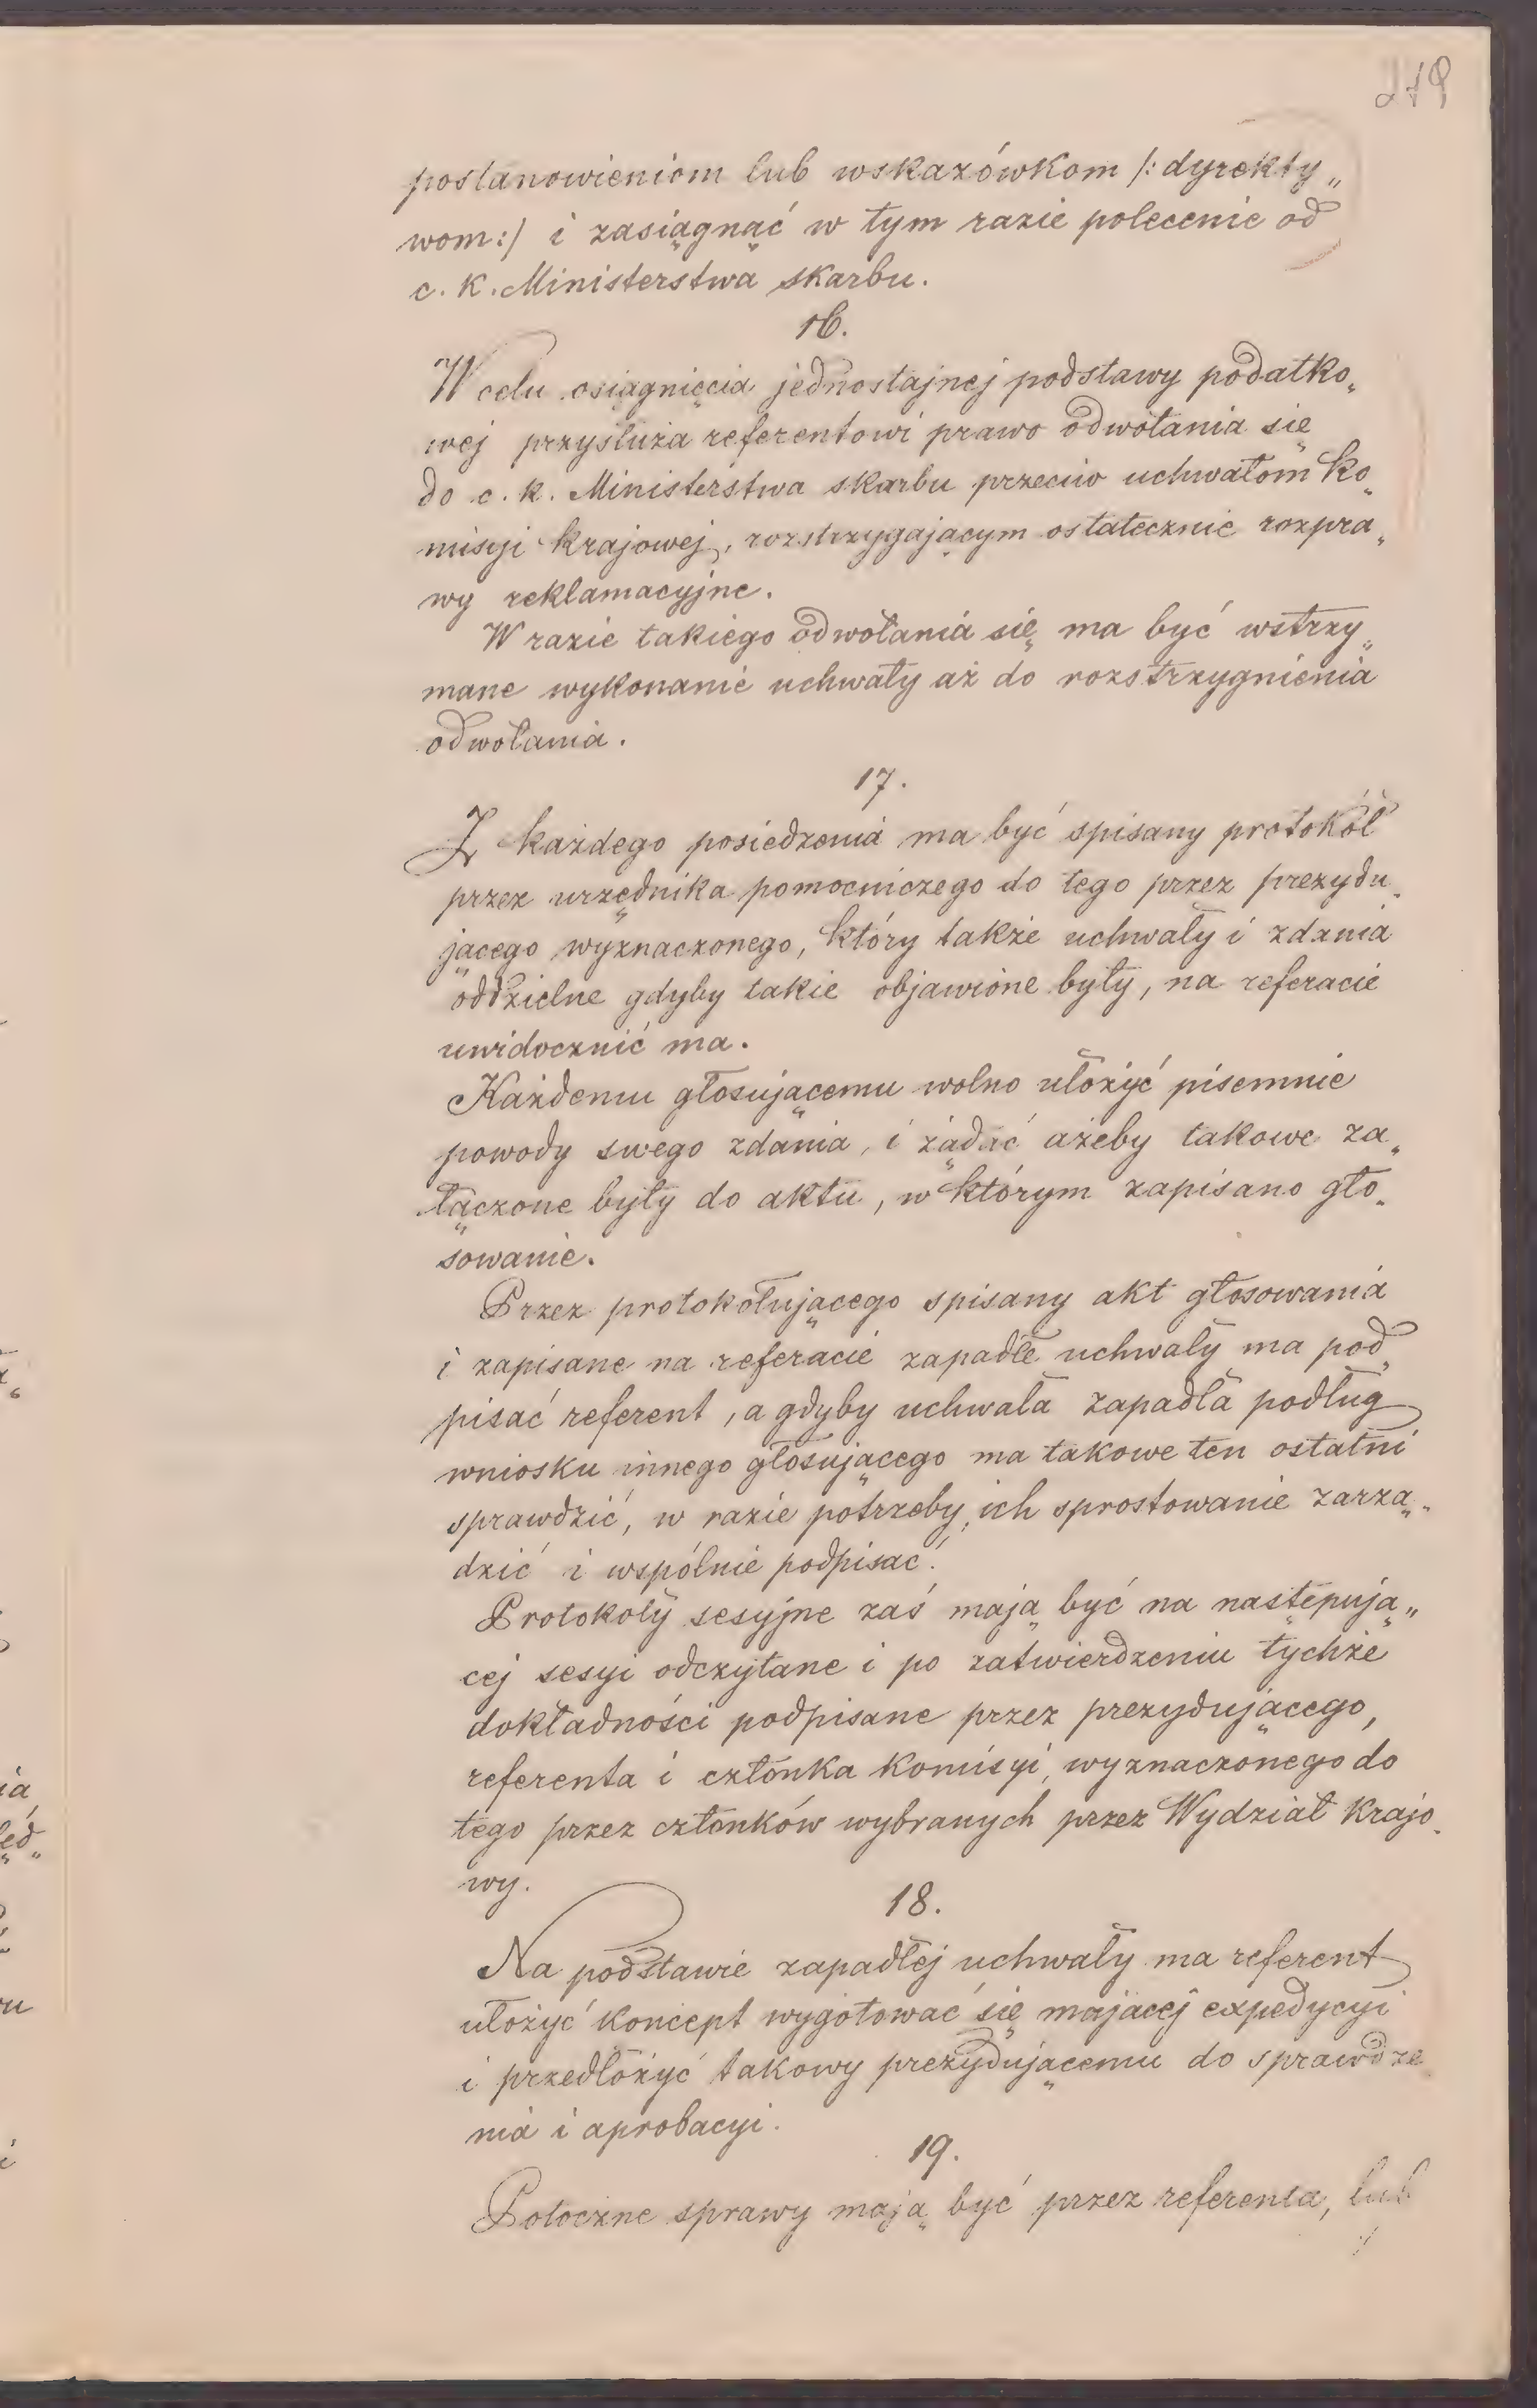 279
postanowieniom lub wskazówkom /: dyrekty„
wom :/ i zasiągnąć w tym razie polecenie od
c. k. Ministerstwa skarbu.
16.
W celu osiągnięcia jednostajnej podstawy podatko„
wej przysłuża referentowi prawo odwołania się
do c. k. Ministerstwa skarbu przeciw uchwałom ko„
misyi krajowej, rozstrzygającym ostatecznie rozpra„
wy reklamacyjne.
W razie takiego odwołania się ma być wstrzy„
mane wykonanie uchwały aż do rozstrzygnienia
odwołania.
17.
Z każdego posiedzenia ma być spisany protokół
przez urzędnika pomocniczego do tego przez prezydu„
jącego wyznaczonego, który także uchwały i zdania
oddzielne gdyby takie objawione były, na referacie
uwidocznić ma.
Każdemu głosującemu wolno ułożyć pisemnie
powody swego zdania, i żądać ażeby takowe za„
łączone były do aktu, w którym zapisano gło„
sowanie.
Przez protokołującego spisany akt głosowania
i zapisane na referacie zapadłe uchwały ma pod„
pisać referent, a gdyby uchwała zapadła podług
wniosku innego głosującego ma takowe ten ostatni
sprawdzić, w razie potrzeby, ich sprostowanie zarzą„
dzić i wspólnie podpisać.
Protokoły sesyjne zaś mają być na następują„
cej sesyi odczytane i po zatwierdzeniu tychże
dokładności podpisane przez prezydującego,
referenta i członka komisyi, wyznaczonego do
tego przez członków wybranych przez Wydział krajo„
wy.
18.
Na podstawie zapadłej uchwały ma referent
ułożyć koncept wygotować się mającej expedycyi
i przedłożyć takowy prezydującemu do sprawdze„
nia i aprobacyi.
19.
Potoczne sprawy mają być przez referenta, lub